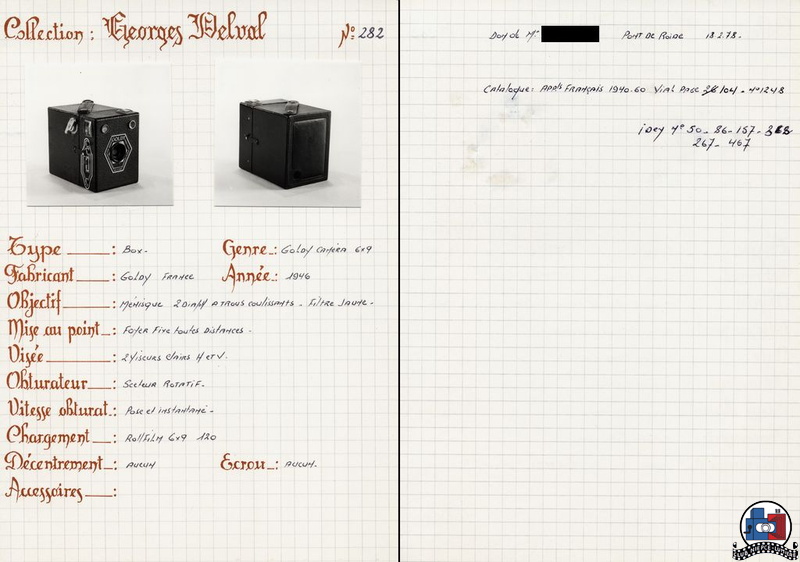 Collection : Georges Delval N° 282
Type : Box.
Genre : Goldy Caméra 6x9
Fabricant : Goldy France
Année : 1946
Objectif : Ménisque 2 Diaph A trous coulissants. Filtre Jaune.
Mise au point : Foyer Fixe toutes Distances.
Visée : 2 Viseurs clairs H et V.
Obturateur : Secteur Rotatif.
Vitesse obturat. : Pose et instantané.
Chargement : Rollfilm 6x9 120
Décentrement : Aucun
Ecrou : Aucun.
Accessoires :
Don de Mr Pont de Roide 18.2.78.
Catalogue: App. Français 1940.60 Vial Page 104. N°1248
idem N° 50. 86. 157.
267. 467